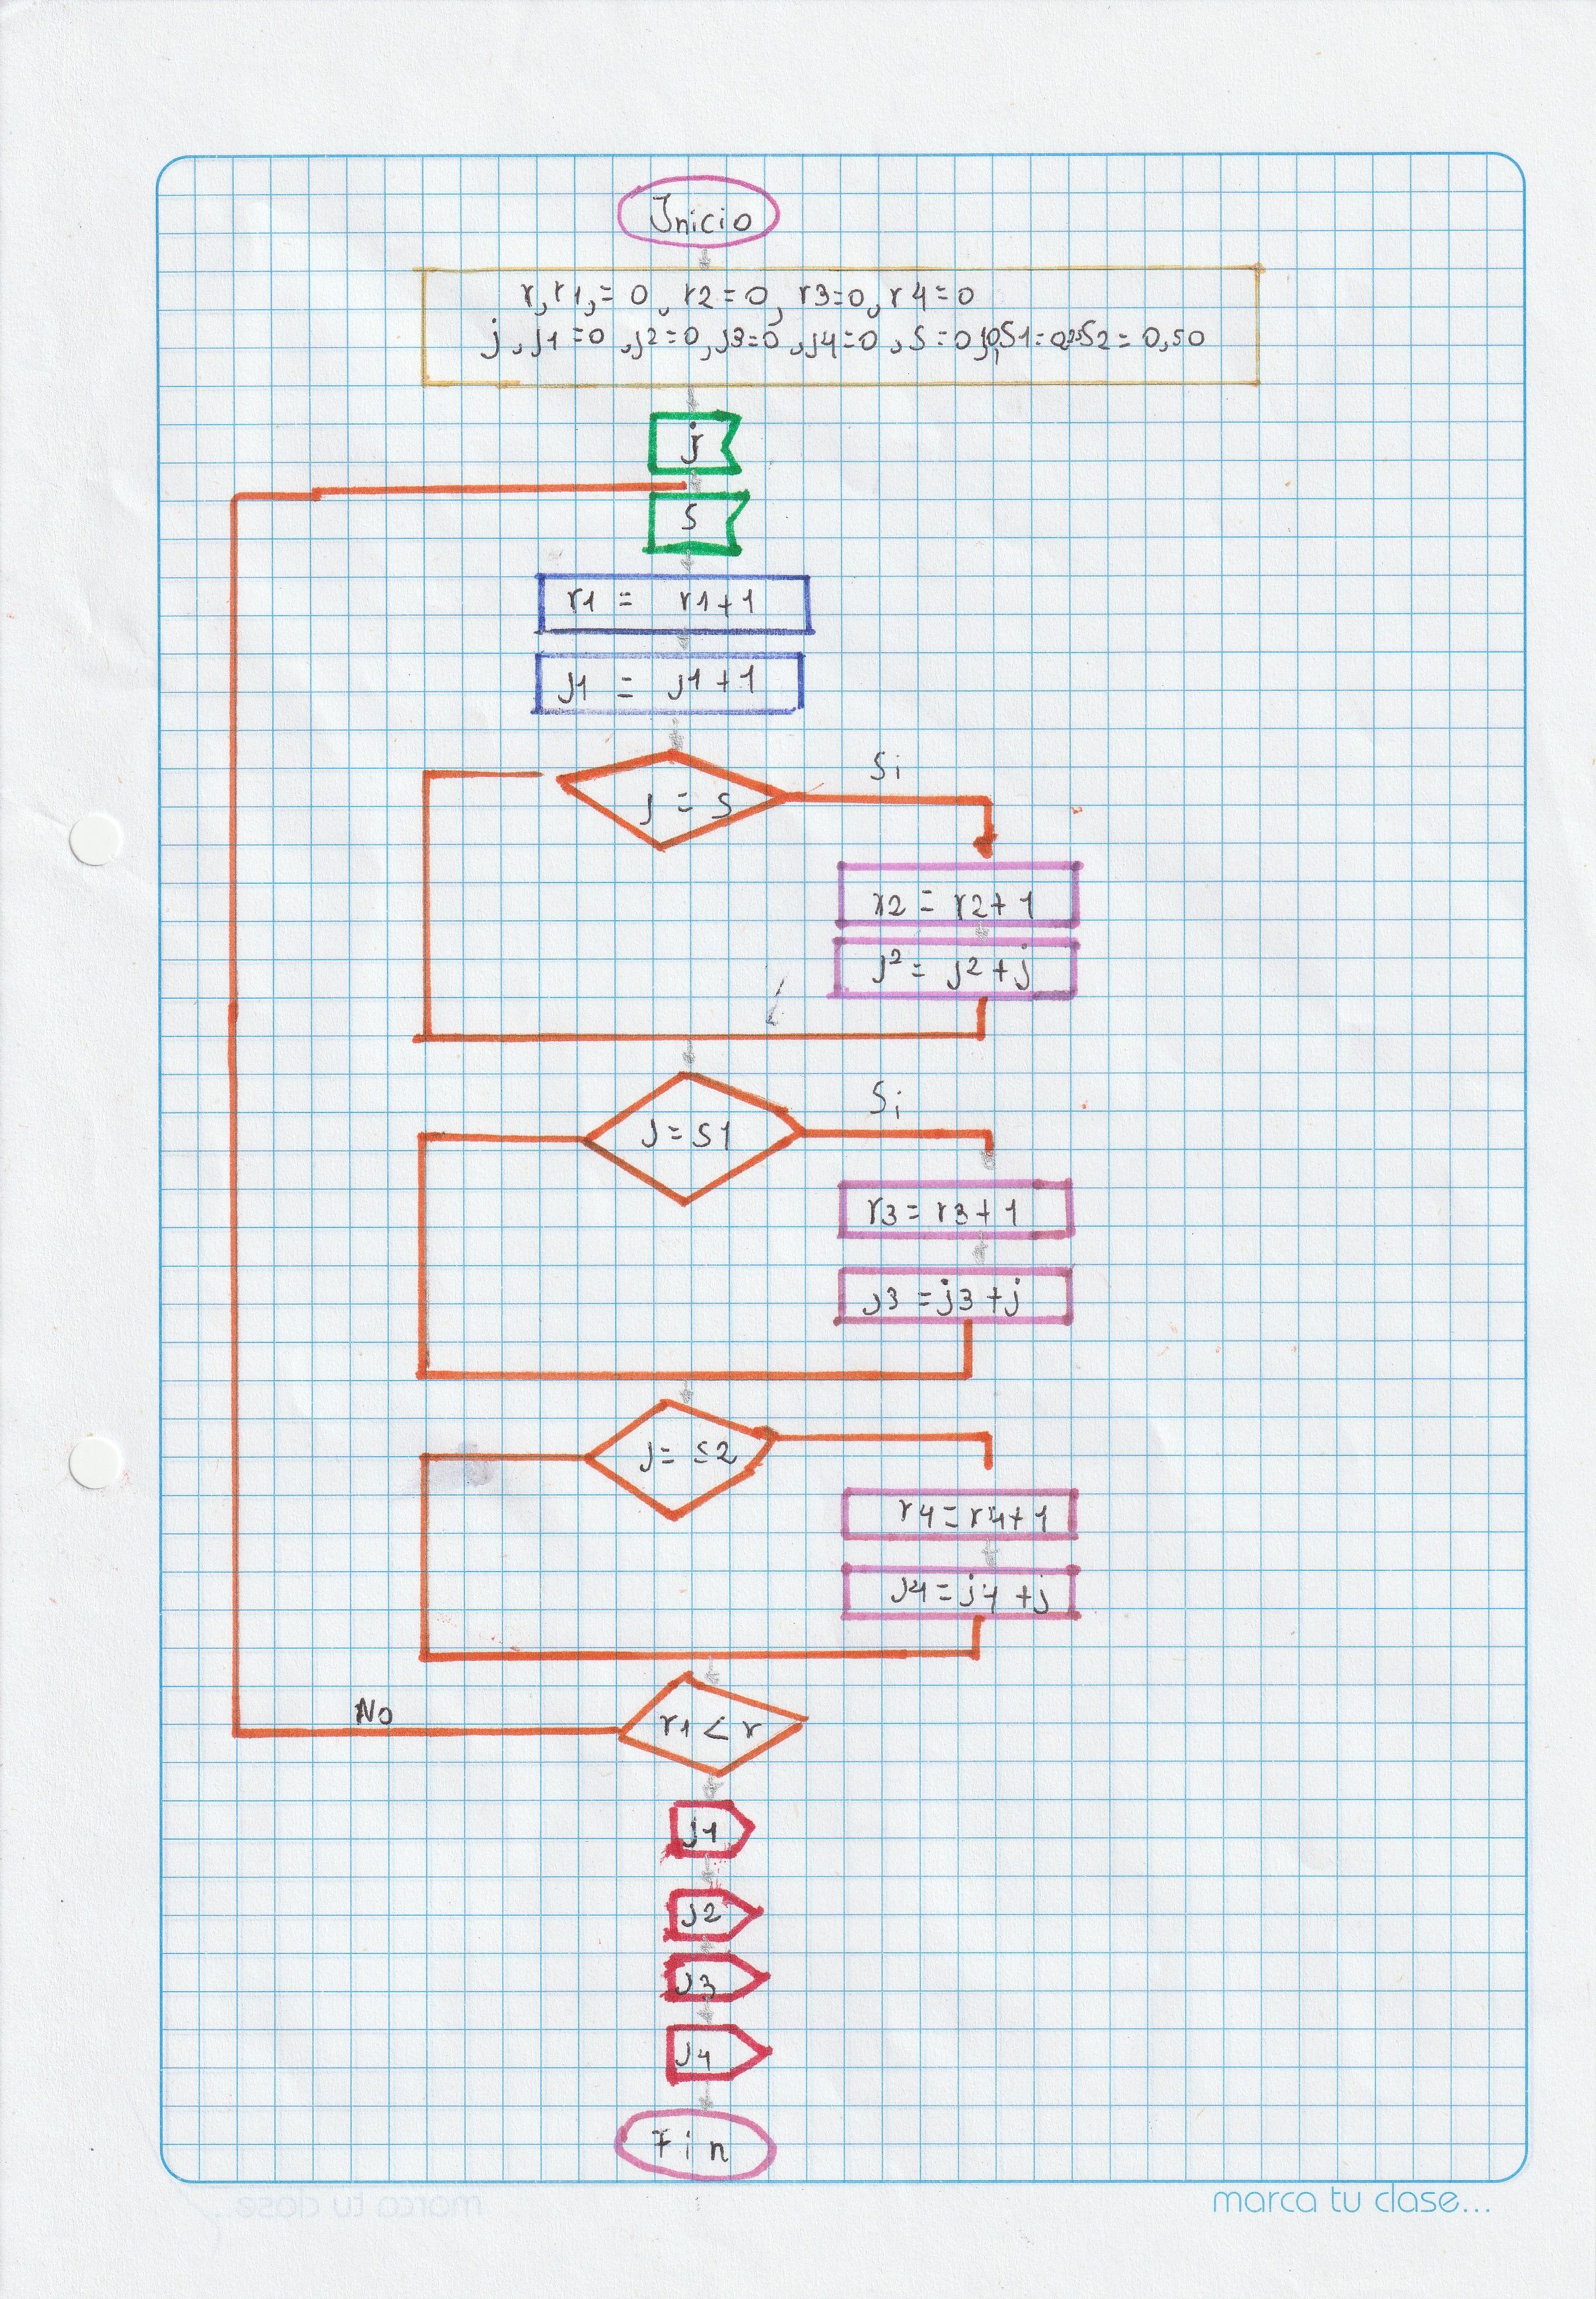 Inicio
r, r1, = 0, r2 = 0, r3=0, r4=0
j, j1=0, j2=0, j3=0, j4=0, s=0,10, S1=0,25 S2=0,50
s
r1 = r1+1
j1 = j1+1
j = s
Si
r2 = r2+1
j2 = j2+j
j=s1
Si
r3=r3+1
j3=j3+j
j=s2
r4=r4+1
j4=j4+j
r1<r
No
j1
j2
j3
j4
Fin
marca tu clase...